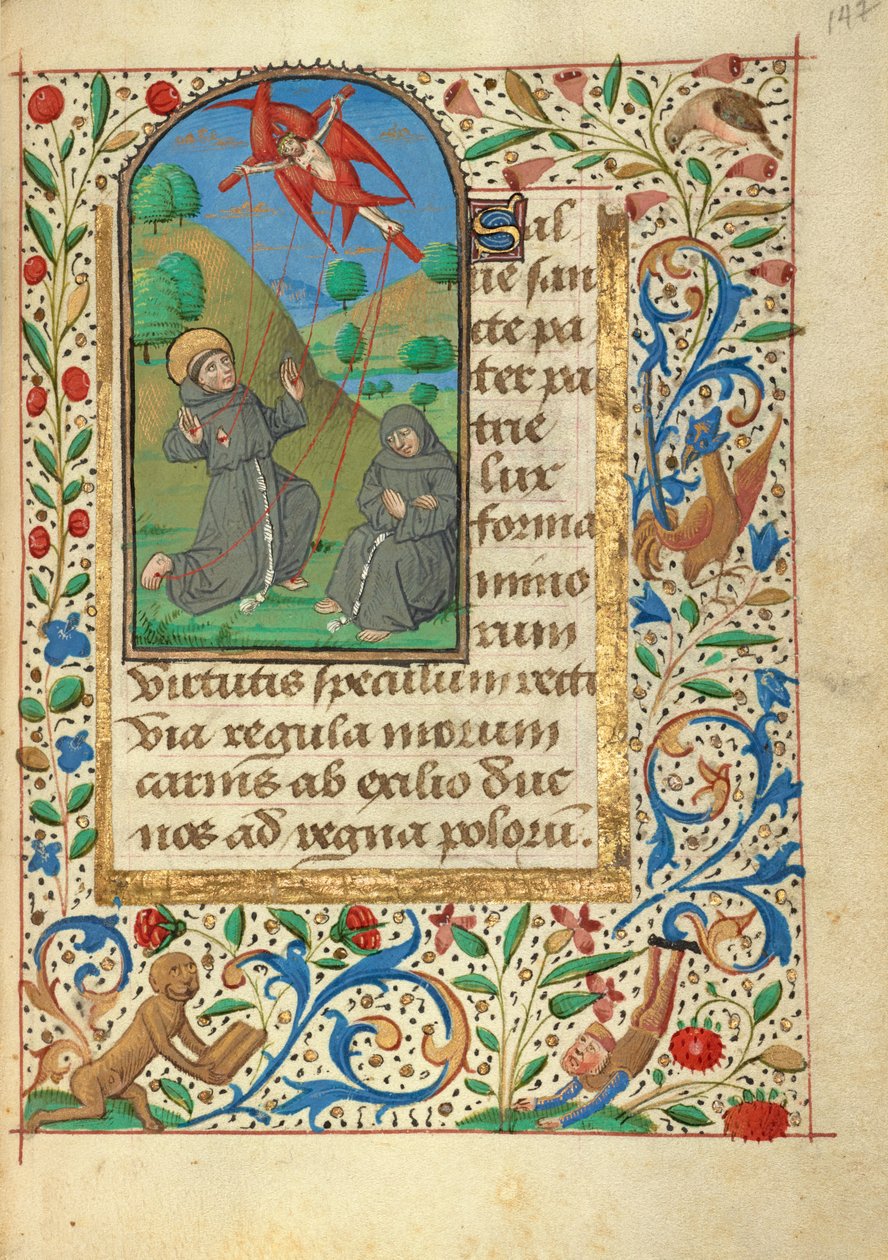 147
Sal
ue san
cte pa
ter pa
trie
lux
forma
mino
rum
virtutis speculum recti
via regula morum
carnis ab exilio duc
nos ad regna polorū.